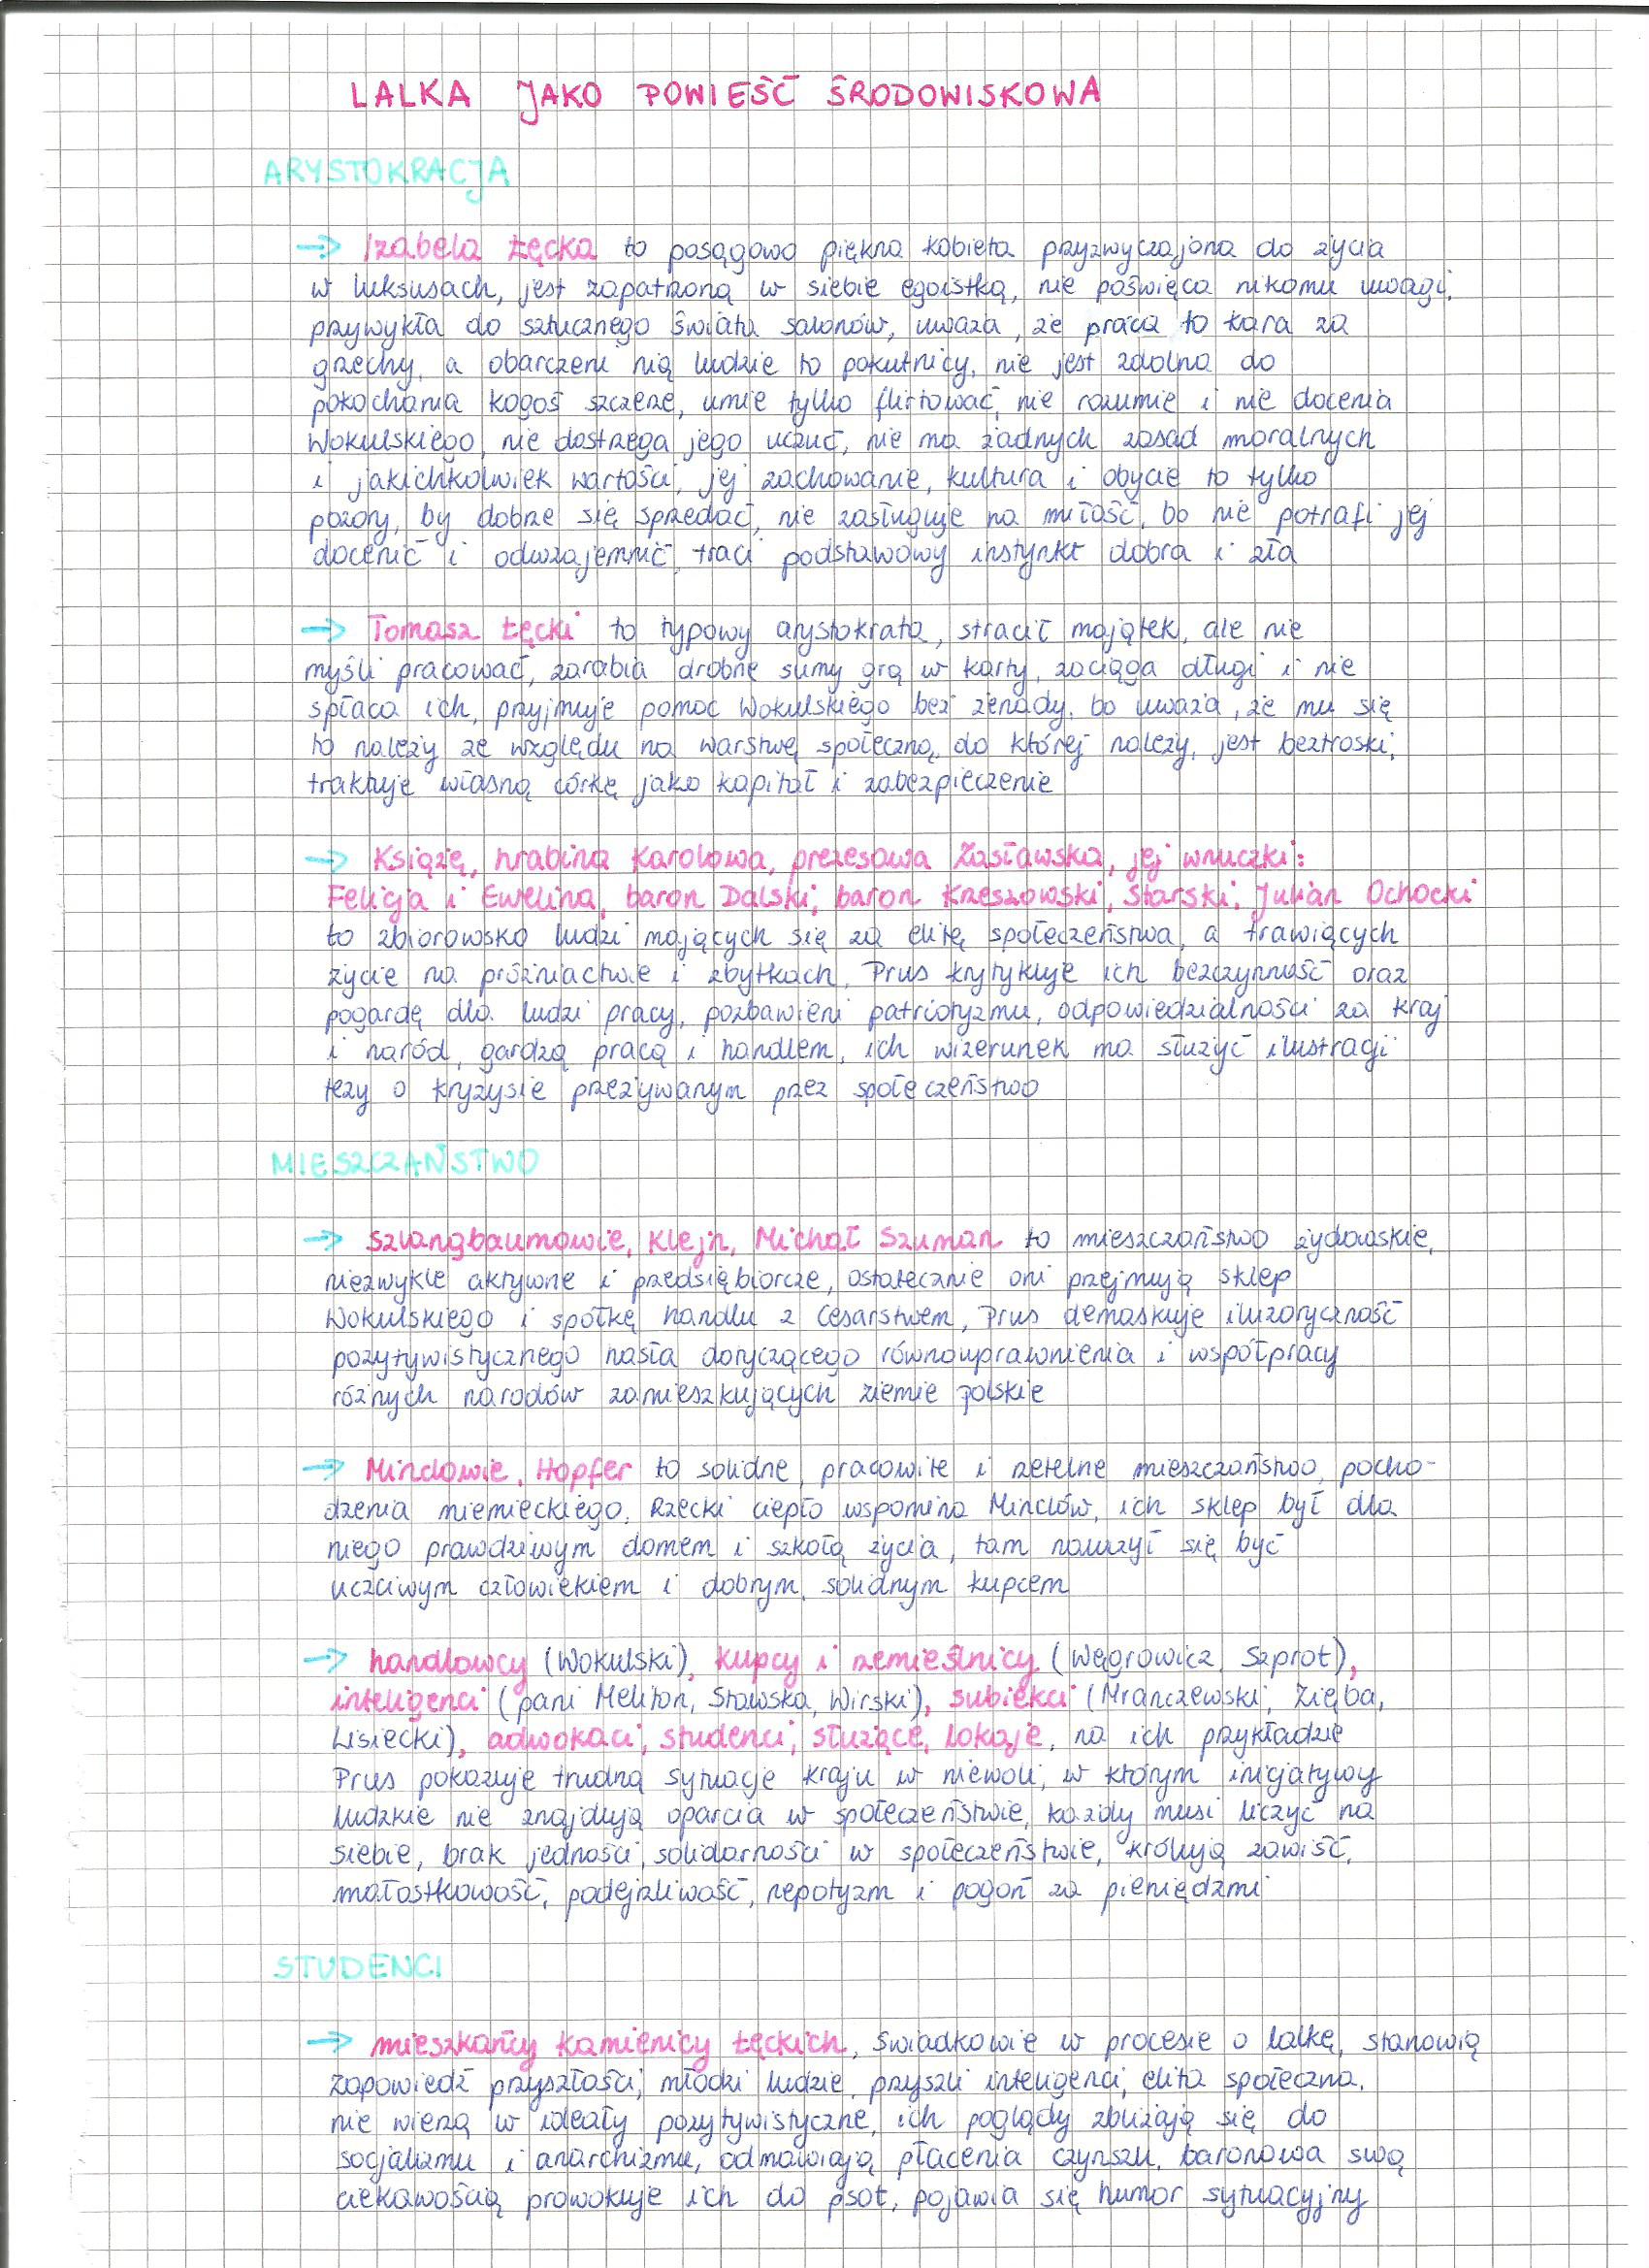 LALKA JAKO POWIEŚĆ ŚRODOWISKOWA
ARYSTOKRACJA
→ Izabela Łęcka to posągowo piękna kobieta przyzwyczajona do życia
w luksusach, jest zapatrzoną w siebie egoistką, nie poświęca nikomu uwagi,
przywykła do sztucznego świata salonów, uważa, że praca to kara za
grzechy, a obarczeni nią ludzie to pokutnicy, nie jest zdolna do
pokochania kogoś szczerze, umie tylko flirtować, nie rozumie i nie docenia
Wokulskiego, nie dostrzega jego uczuć, nie ma żadnych zasad moralnych
i jakichkolwiek wartości, jej zachowanie, kultura i obycie to tylko
pozory, by dobrze się sprzedać, nie zasługuje na miłość, bo nie potrafi jej
docenić i odwzajemnić, traci podstawowy instynkt dobra i zła
→ Tomasz Łęcki to typowy arystokrata, stracił majątek, ale nie
myśli pracować, zarabia drobne sumy grą w karty, zaciąga długi i nie
spłaca ich, przyjmuje pomoc Wokulskiego bez żenady, bo uważa, że mu się
to należy ze względu na warstwę społeczną, do której należy, jest beztroski,
traktuje własną córkę jako kapitał i zabezpieczenie
→ Książę, hrabina Karolowa, prezesowa Zasławska, jej wnuczki:
Felicja i Ewelina, baron Dalski, baron Krzeszowski, Starski, Julian Ochocki
to zbiorowsko ludzi mających się za elitę społeczeństwa, a trawiących
życie na próżniactwie i zbytkach, Prus krytykuje ich bezczynność oraz
pogardę dla ludzi pracy, pozbawieni patriotyzmu, odpowiedzialności za kraj
i naród, gardzą pracą i handlem, ich wizerunek ma służyć ilustracji
tezy o kryzysie przeżywanym przez społeczeństwo
MIESZCZAŃSTWO
→ Szlangbaumowie, Klejn, Michał Szuman to mieszczaństwo żydowskie,
niezwykle aktywne i przedsiębiorcze, ostatecznie oni przejmują sklep
Wokulskiego i spółkę handlu z Cesarstwem, Prus demaskuje iluzoryczność
pozytywistycznego hasła dotyczącego równouprawnienia i współpracy
różnych narodów zamieszkujących ziemie polskie
→ Minclowie, Hopfer to solidne, pracowite i rzetelne mieszczaństwo, pocho-
dzenia niemieckiego, Rzecki ciepło wspomina Minclów, ich sklep był dla
niego prawdziwym domem i szkołą życia, tam nauczył się być
uczciwym człowiekiem i dobrym, solidnym kupcem
→ handlowcy (Wokulski), kupcy i rzemieślnicy (Węgrowicz, Szprot),
inteligenci (pani Meliton, Stawska, Wirski), subiekci (Mraczewski, Zięba,
Lisiecki), adwokaci, studenci, służące, lokaje, na ich przykładzie
Prus pokazuje trudną sytuację kraju w niewoli, w którym inicjatywy
ludzkie nie znajdują oparcia w społeczeństwie, każdy musi liczyć na
siebie, brak jedności, solidarności w społeczeństwie, królują zawiść,
małostkowość, podejrzliwość, nepotyzm i pogoń za pieniędzmi
STUDENCI
→ mieszkańcy kamienicy Łęckich, świadkowie w procesie o lalkę, stanowią
zapowiedź przyszłości, młodzi ludzie, przyszli inteligenci, elita społeczna,
nie wierzą w ideały pozytywistyczne, ich poglądy zbliżają się do
socjalizmu i anarchizmu, odmawiają płacenia czynszu, baronowa swą
ciekawością prowokuje ich do psot, pojawia się humor sytuacyjny